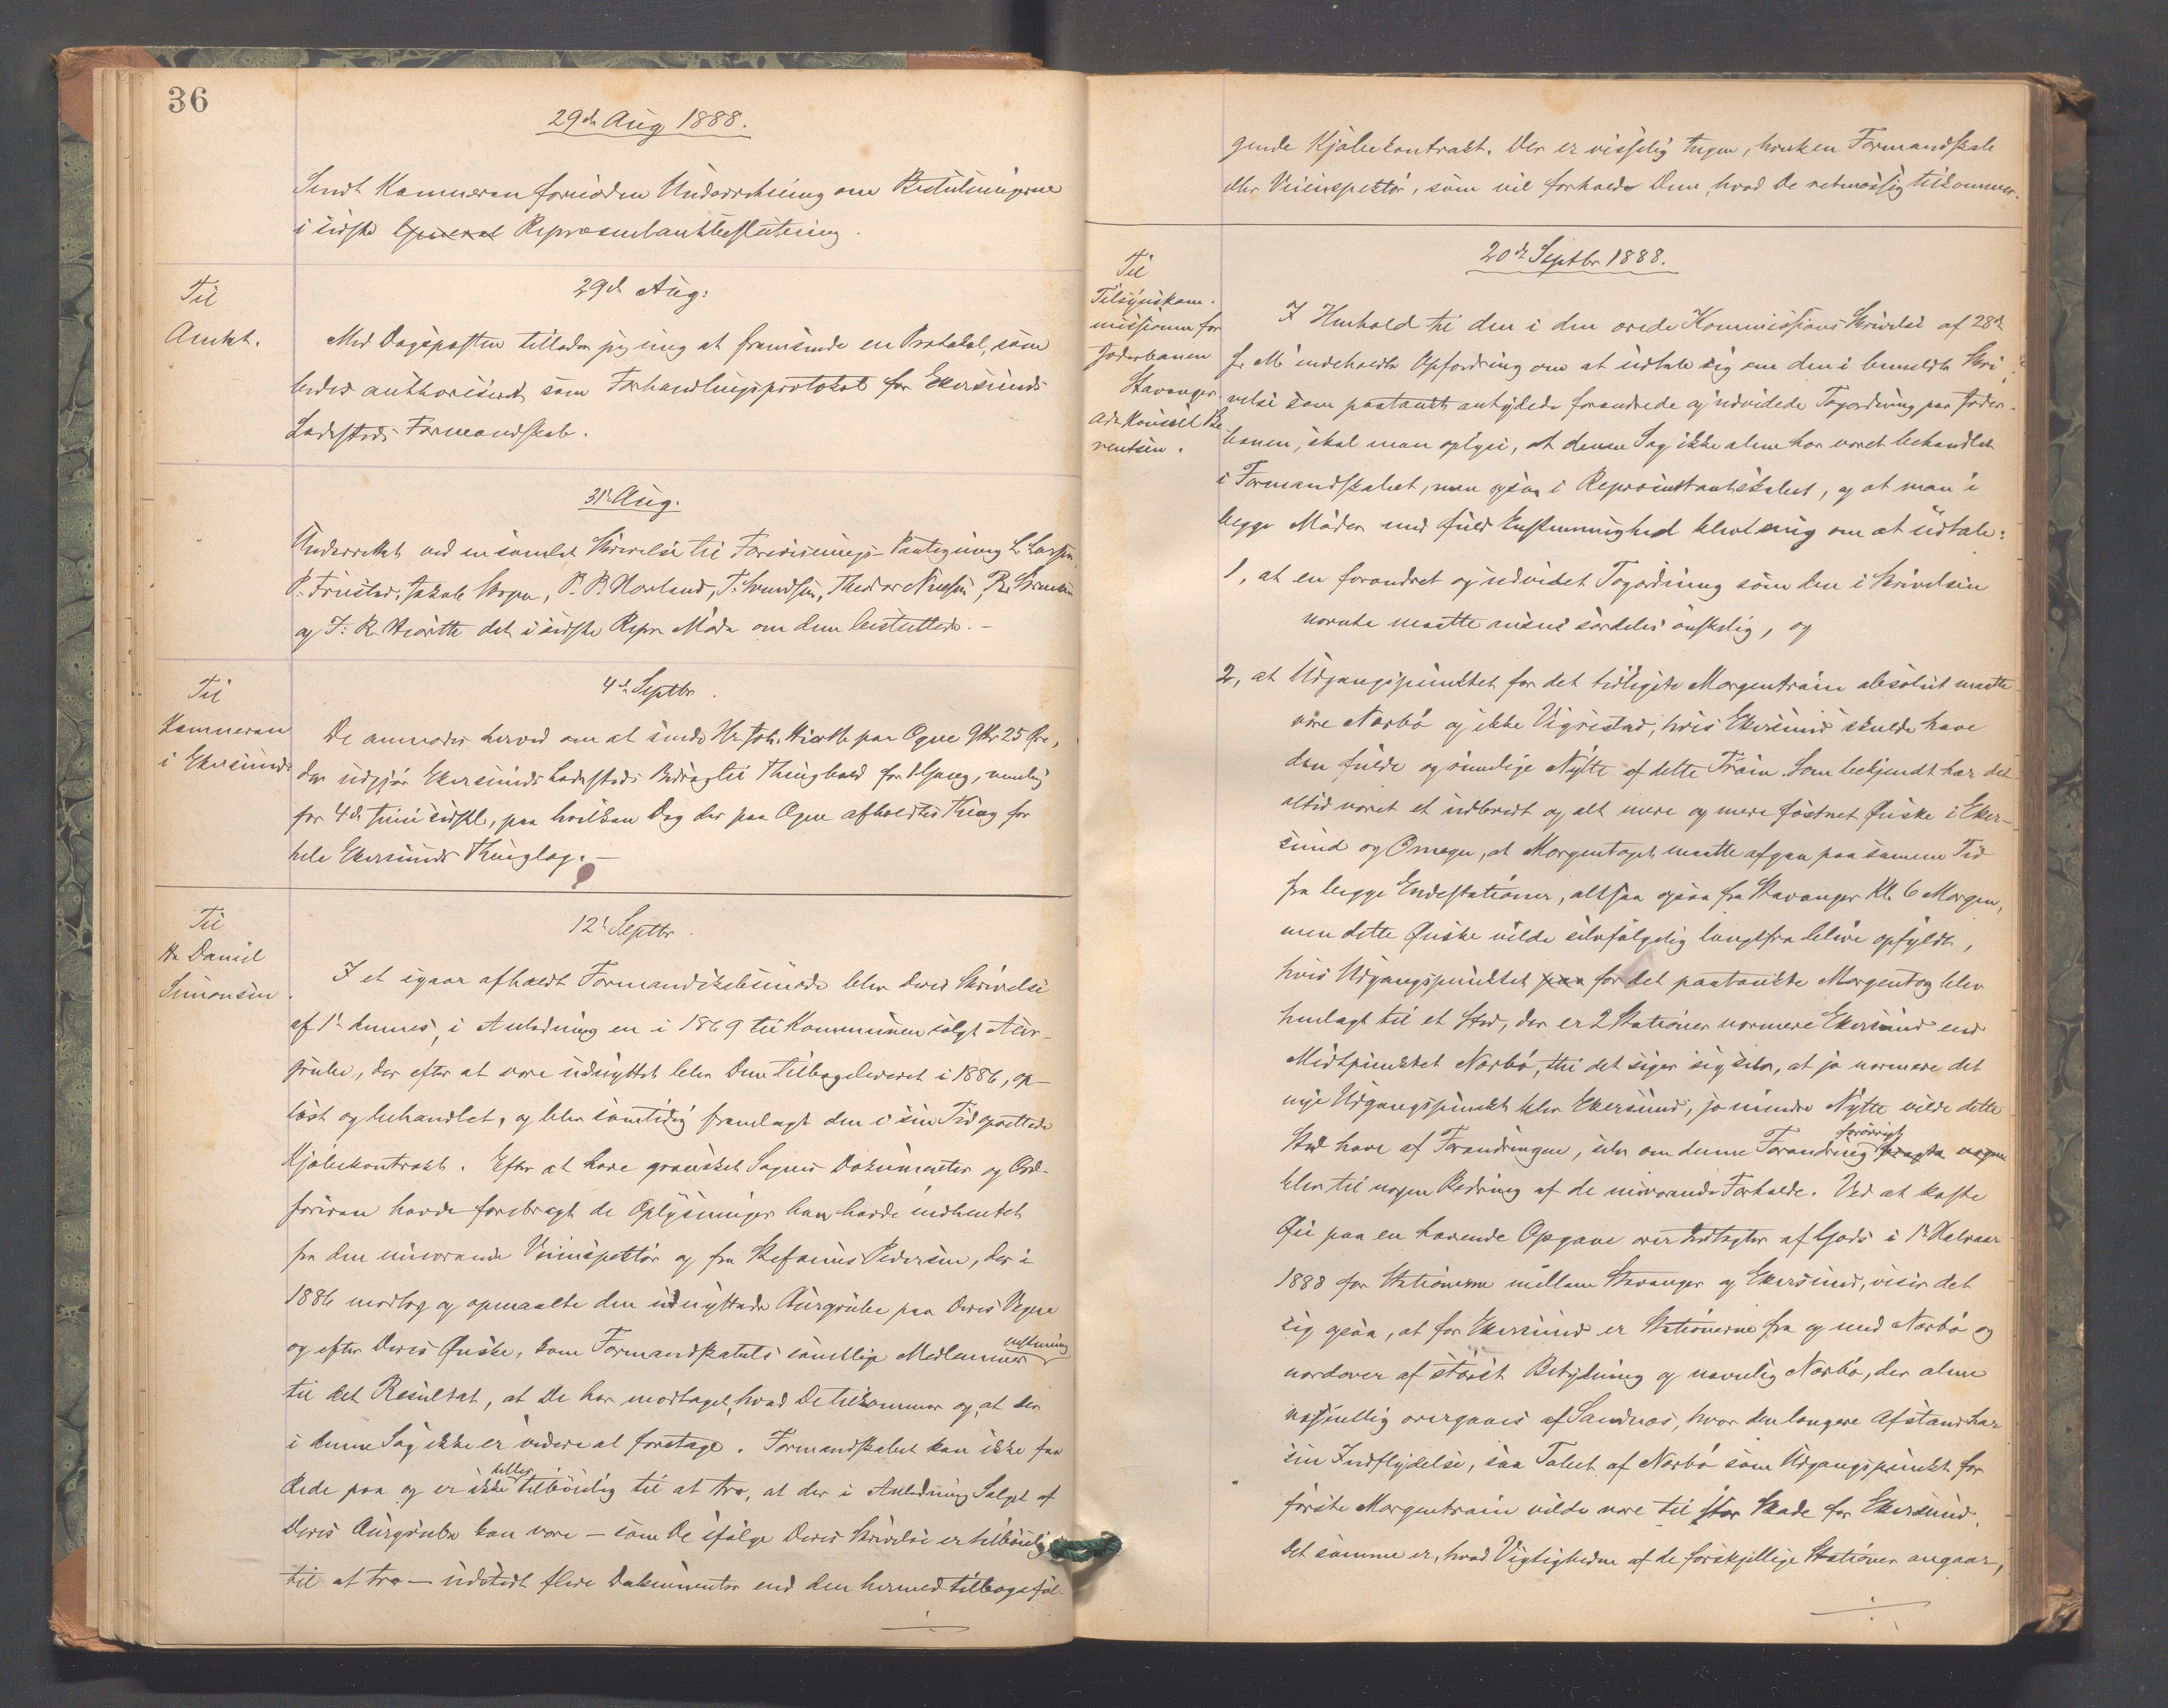 36
29de Aug 1888.
Sendt Kæmneren fornøden Underretning om Beslutningerne
i sidste General Repræsentantbeslutning.
Til
Amtet.
29de Aug:
Med Dagsposten tillader jeg mig at fremsende en Protokol, som
bedes authoriseret som Forhandlingsprotokol for Ekersunds
Ladesteds Formandskab.
31te Aug.
Underrettet ved en samlet Skrivelse til Forevisnings-Paategning L. Larsen,
P. Puntervold, Jakob Skogen, P. B. Hovland, T. Svendsen, Theodor Nielsen,
og J. R. Hiorth det i sidste Repr Møde om dem besluttede. —
Til
Kæmneren
i Ekersund
4de Septbr.
De anmodes herved om at sende Hr. Joh. Hiorth paa Ogne 9 Kr 25 Øre,
der udgjør Ekersunds Ladesteds Bidrag til Thinghold for 1 Gang, nemlig
for 4de Juni sidstl., paa hvilken Dag der paa Ogne afholdtes Thing for
hele Ekersunds Thinglag. —
Til
Hr Daniel
Simonsen.
12te Septbr.
I et igaar afholdt Formandskabsmøde blev Deres Skrivelse
af 1te dennes, i Anledning en i 1869 til Kommunen solgt Aur-
grube, der efter at være udnyttet blev Dem tilbageleveret i 1886, op-
læst og behandlet, og blev samtidig fremlagt den i sin Tid oprettede
Kjøbekontrakt. Efter at have gransket Sagens Dokumenter og Ord-
føreren havde forebragt de Oplysninger han havde indhentet
fra den nuværende Veiinspektør og fra Stefanus Pedersen, der i
1886 modtog og opmaalte den udnyttede Aurgrube paa Deres Vegne
og efter Deres Ønske, kom Formandskabets samtlige Medlemmer enstemmig
til det Resultat, at De har modtaget, hvad De tilkommer og, at der
i denne Sag ikke er videre at foretage. Formandskabet kan ikke faa
Rede paa og er ikke heller tilbøielig til at tro, at der i Anledning Salget af
Deres Aurgrube kan være — som De ifølge Deres Skrivelse er tilbøielig
til at tro — udstedt flere Dokumenter end den hermed tilbageføl-
gende Kjøbekontrakt. Der er visselig Ingen, hverken Formandskab
eller Veiinspektør, som vil forholde Dem, hvad De retmæssig tilkommer.
Til
Tilsynskom-
missionen for
Jæderbanen
Stavanger.
Adr Konsul Be
rentsen.
20de Septbr 1888.
I Henhold til den i den ærede Kommissions Skrivelse af 28de
f. M. indeholdte Opfordring om at udtale sig om den i bemeldte Skri-
velse som paatænkt antydede forandrede og udvidede Togordning paa Jæder-
banen, skal man oplyse, at denne Sag ikke alene har været behandlet
i Formandskabet, men ogsaa i Repræsentantskabet, og at man i
begge Møder med fuld Enstemmighed blev enig om at udtale:
1, at en forandret og udvidet Togordning som den i Skrivelsen
nævnte maatte ansees særdeles ønskelig, og
2, at Udgangspunktet for det tidligste Morgentrain absolut maatte
være Nærbø og ikke Vigrestad, hvis Ekersund skulde have
den fulde og rimelige Nytte af dette Train. Som bekjendt har det
altid været et udbredt og alt mere og mere fæstnet Ønske i Eker-
sund og Omegn, at Morgentoget maatte afgaa paa samme Tid
fra begge Endestationer, altsaa ogsaa fra Stavanger Kl. 6 Morgen,
men dette Ønske vilde selvfølgelig langtfra blive opfyldt,
hvis Udgangspunktet paa for det paatænkte Morgentog blev
henlagt til et Sted, der er 2 Stationer nærmere Ekersund end
Midtpunktet Nærbø, thi det siger sig selv, at jo nærmere det
nye Udgangspunkt blev Ekersund, jo mindre Nytte vilde dette
Sted have af Forandringen, selv om denne Forandring forøvrigt
blev til nogen Bedring af de nuværende Forholde. Ved at kaste
Øie paa en havende Opgave over Indtægter af Gods i 1te Halvaar
1888 for Stationerne mellem Stavanger og Ekersund, viser det
sig ogsaa, at for Ekersund er Stationerne fra og med Nærbø og
nordover af størst Betydning og navnlig Nærbø, der alene
væsentlig overgaaes af Sandnæs, hvor den længere Afstand har
sin Indflydelse, saa Tabet af Nærbø som Udgangspunkt for
første Morgentrain vilde være til stor Skade for Ekersund.
Det samme er, hvad Vigtigheden af de forskjellige Stationer angaar,